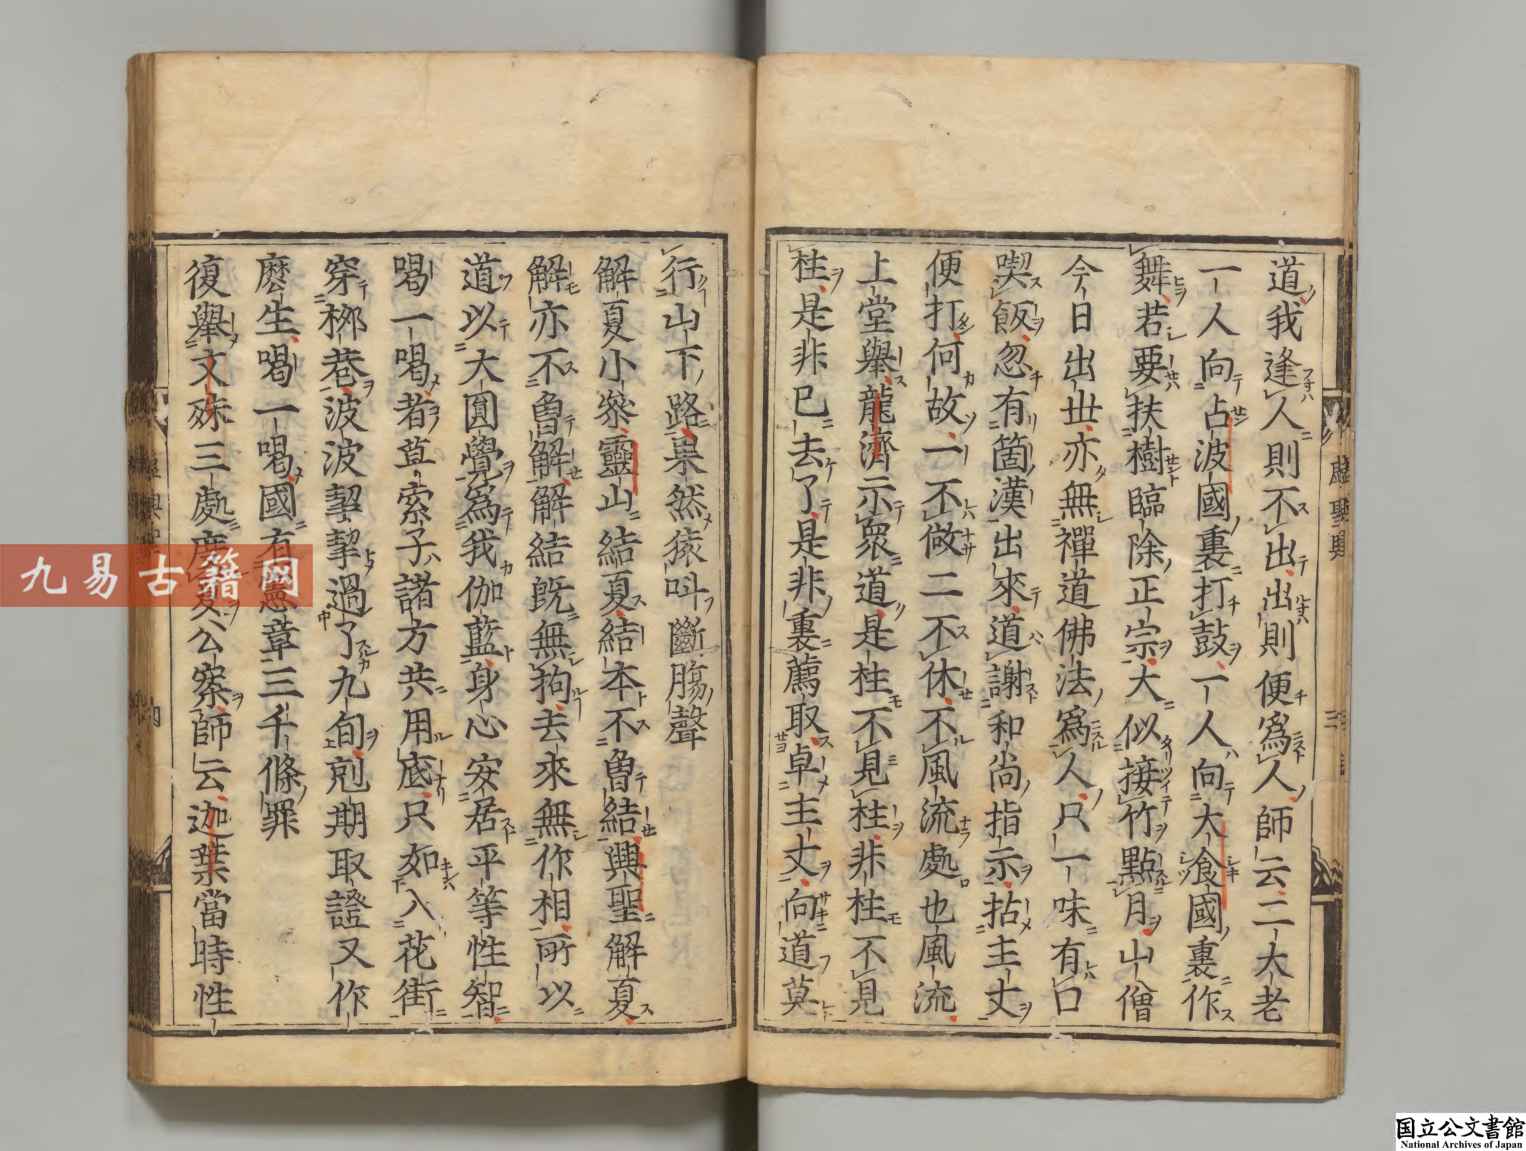 道我逢人則不出出則便爲人師云二大老
一人向占波國裏打鼓一人向大食國裏作
舞若要扶樹臨除正宗大似接竹點月山僧
今日出世亦無禪道佛法爲人只一味有口
喫飯忽有箇漢出來道謝和尚指示拈主丈
便打何故一不做二不休不風流處也風流
上堂舉龍濟示衆道是柱不見柱非柱不見
柱是非已去了是非裏薦取卓主丈向道莫
行山下路果然猿叫斷腸聲
解夏小參靈山結夏結本不魯結興聖解夏
解亦不魯解解結既無拘去來無作相所以
道以大圓覺爲我伽藍身心安居平等性智
喝一喝者草索子諸方共用底只如入花街
穿柳巷波波挈挈過了九旬剋期取證又作
麽生喝一喝國有憲章三千條罪
復舉文殊三處度夏公案師云迦葉當時性
九易古籍网
国立公文書館
National Archives of Japan